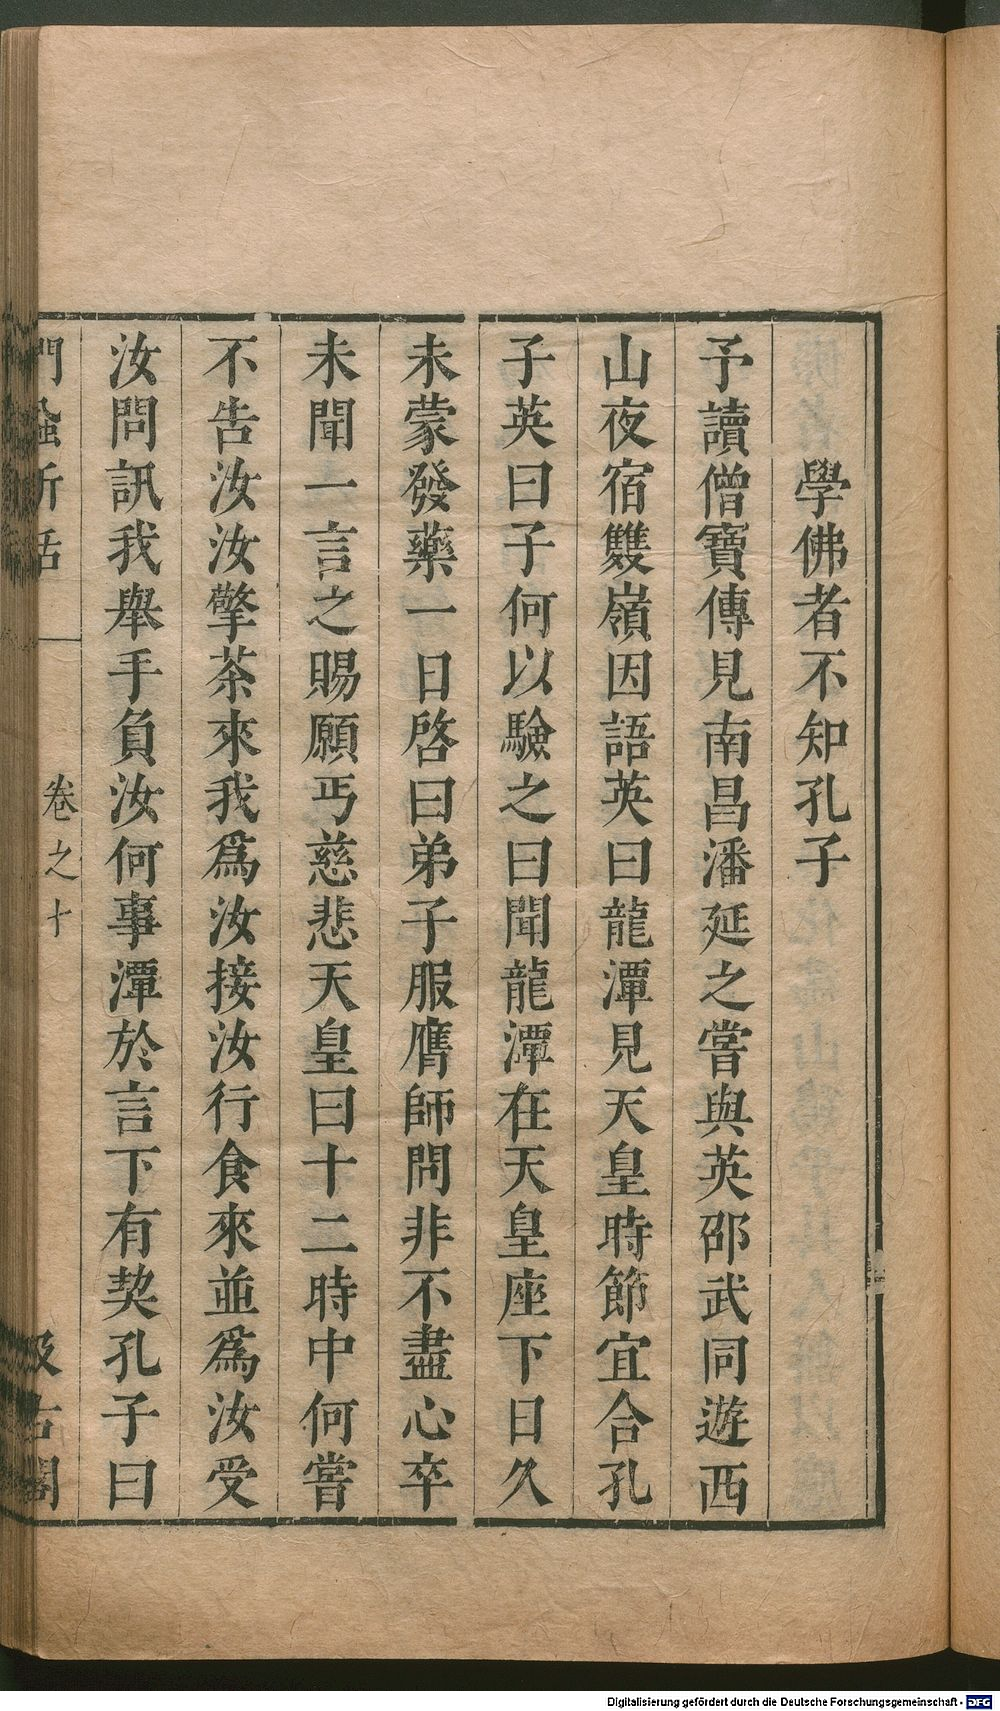 學佛者不知孔子
予讀僧寶傳見南昌潘延之嘗與英邵武同遊西
山夜宿雙嶺因語英曰龍潭見天皇時節宜合孔
子英曰子何以驗之曰聞龍潭在天皇座下日久
未蒙發藥一日啓曰弟子服膺師問非不盡心卒
未聞一言之賜願丐慈悲天皇曰十二時中何嘗
不告汝汝擎茶來我爲汝接汝行食來並爲汝受
汝問訊我舉手負汝何事潭於言下有契孔子曰
門蝨新話
卷之十
汲古閣
Digitalisierung gefördert durch die Deutsche Forschungsgemeinschaft - DFG